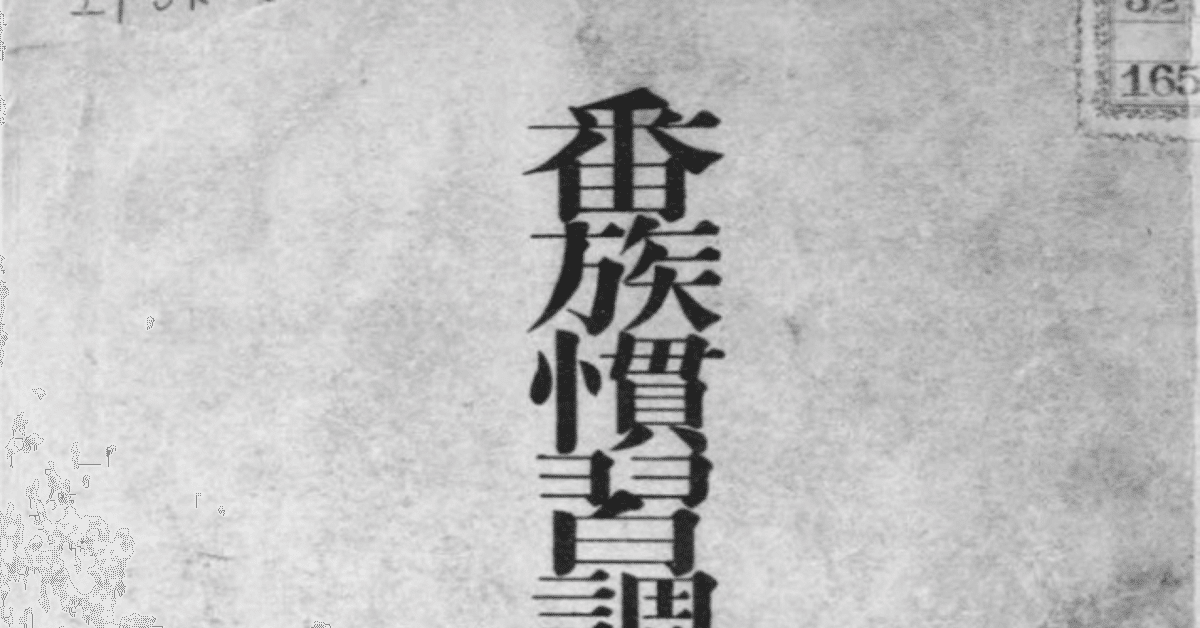 番族慣習調
165